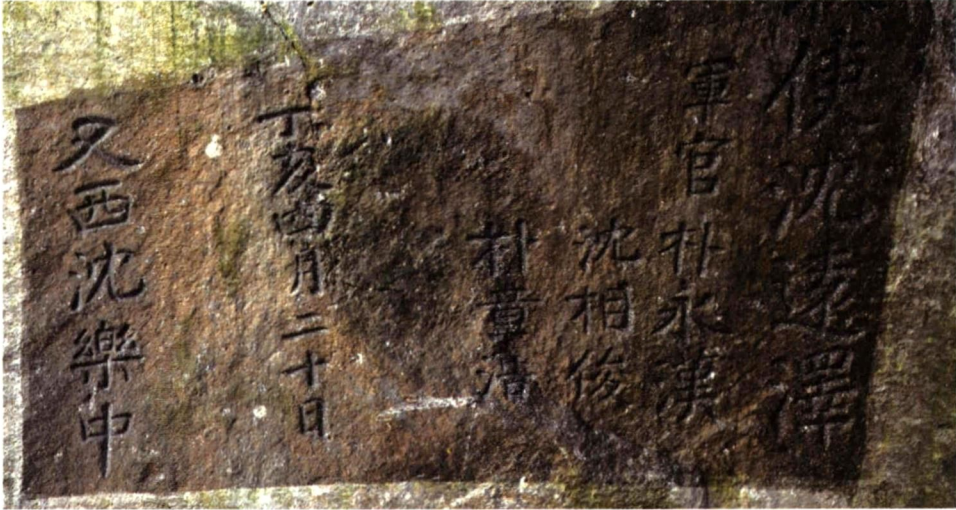 使沈遠澤
軍官 朴永漢
沈栢俊
朴童浩
丁亥四月二十日
又西沈樂中